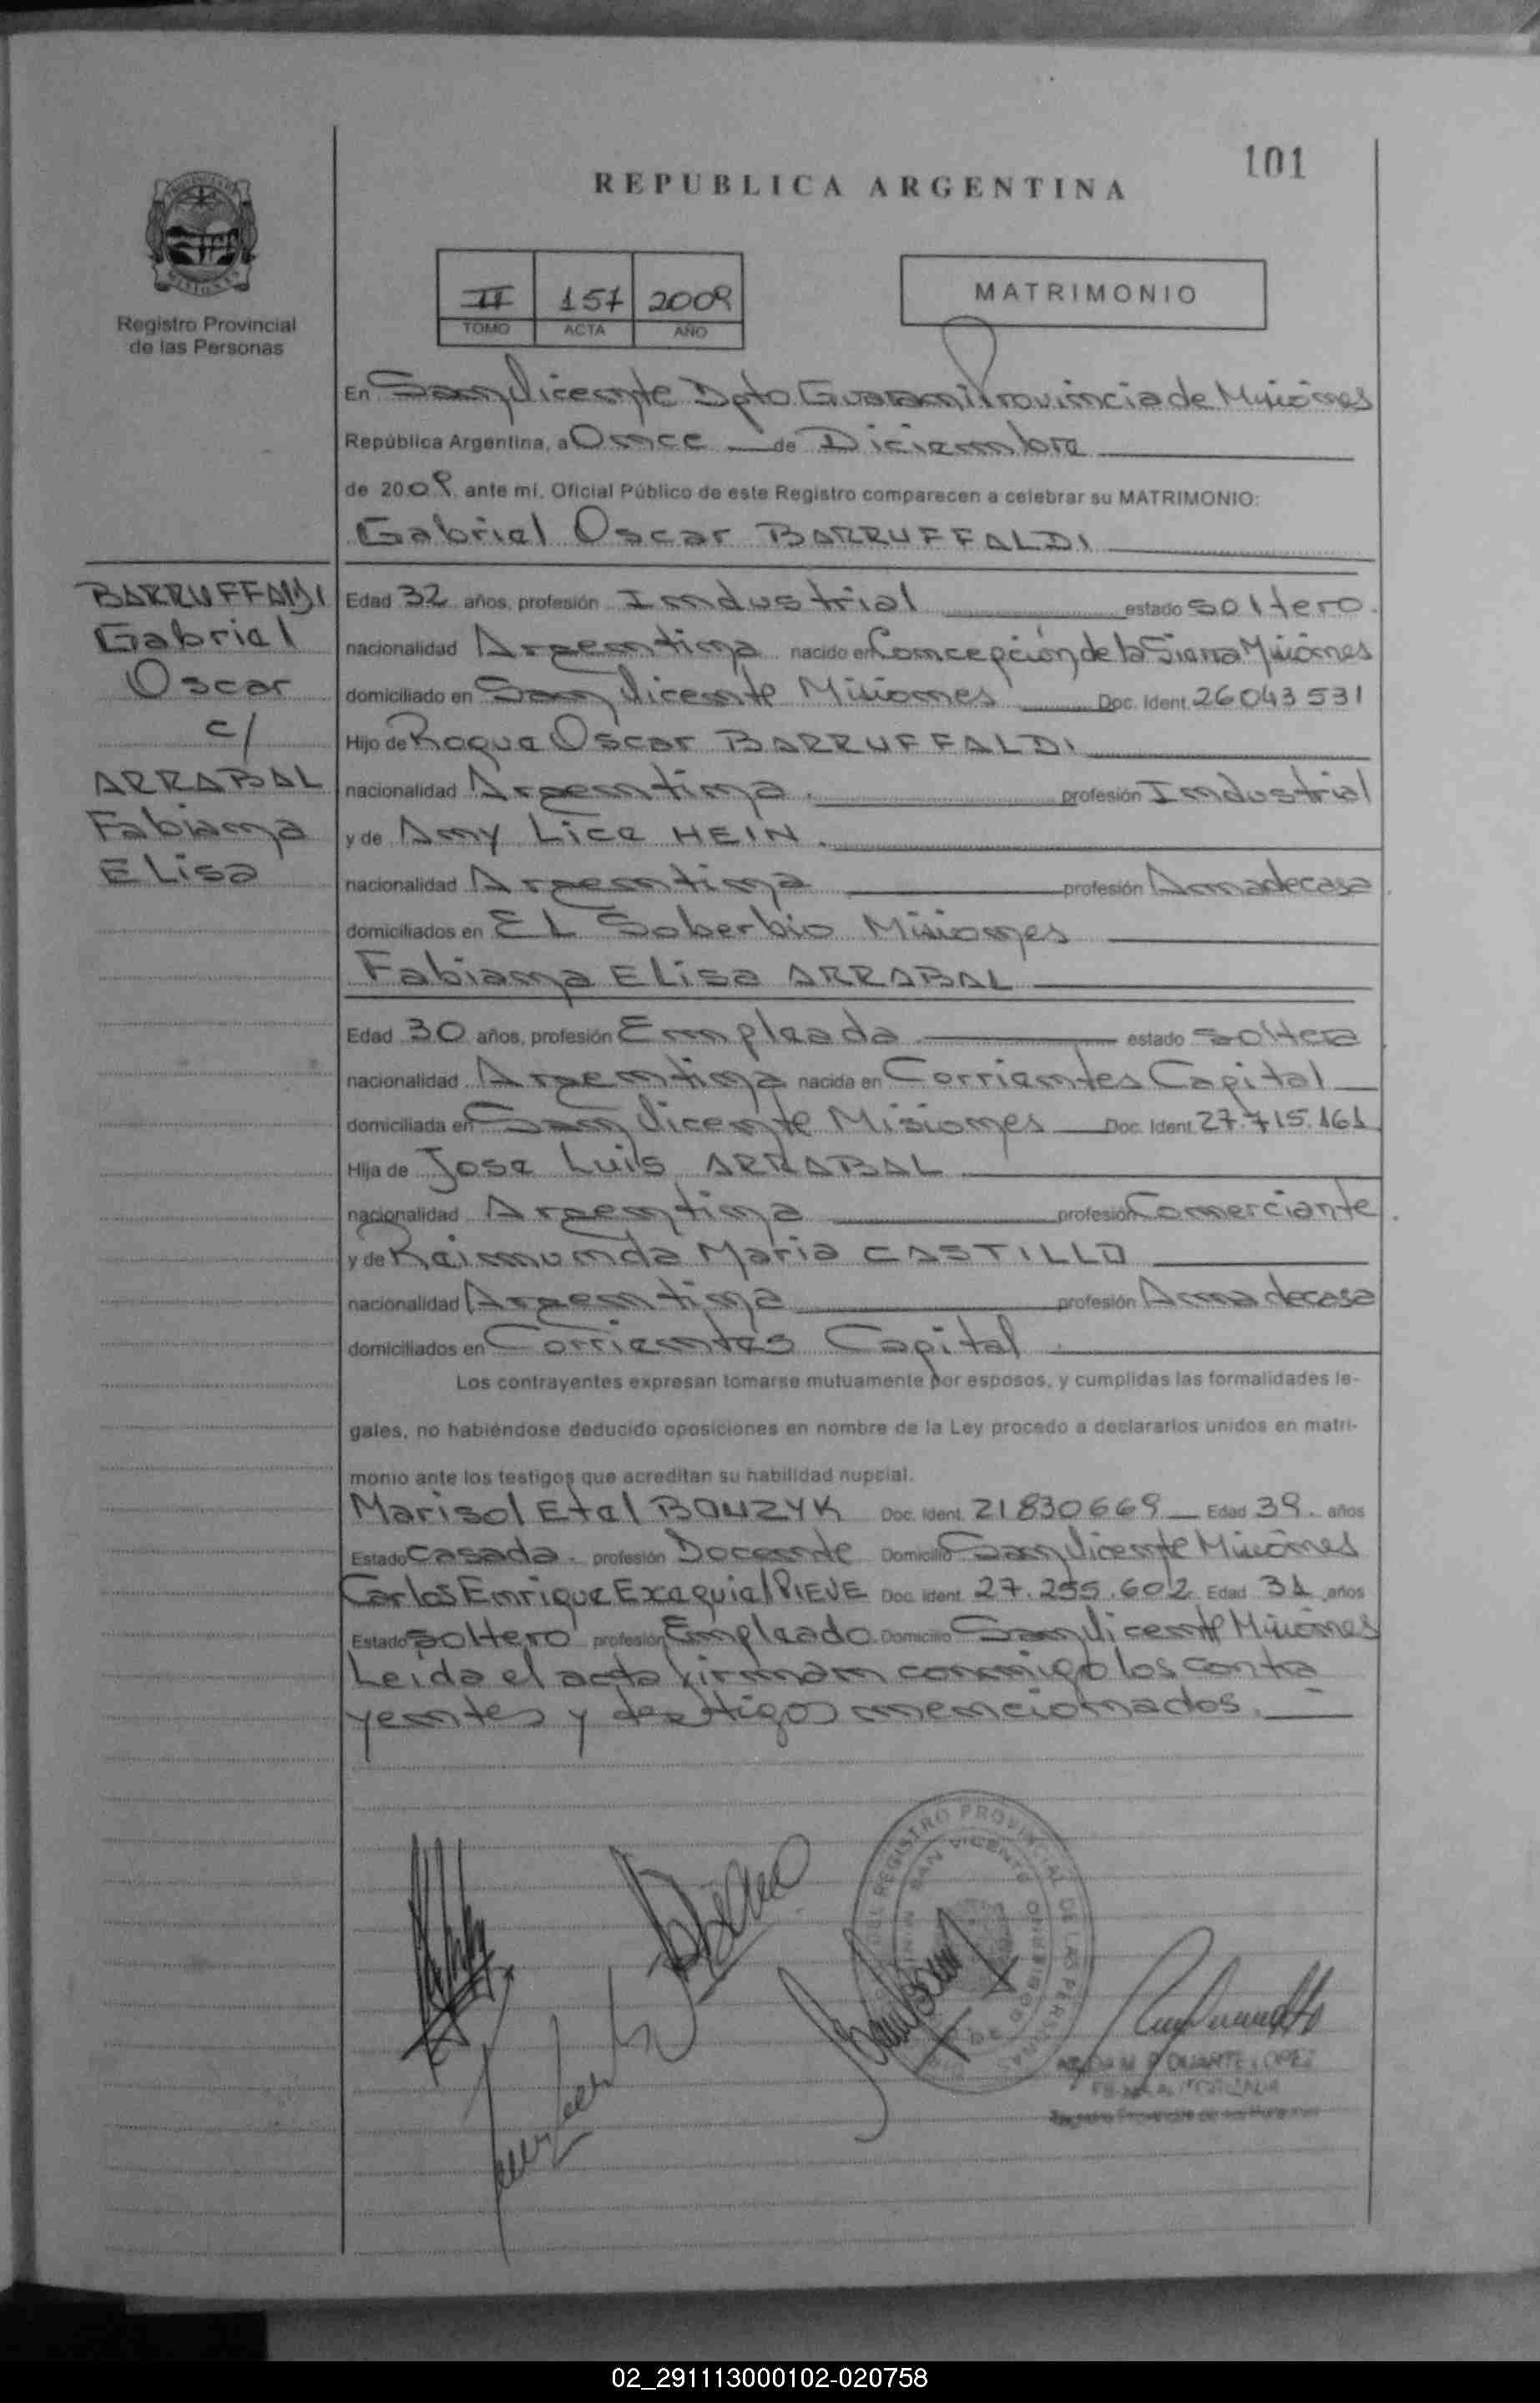 101
REPUBLICA ARGENTINA
Registro Provincial
de las Personas
II 157 2009
TOMO ACTA AÑO
MATRIMONIO
En San Vicente Dpto Guarani Provincia de Misiones
República Argentina, a Once de Diciembre
de 2009 ante mí, Oficial Público de este Registro comparecen a celebrar su MATRIMONIO:
Gabriel Oscar BARRUFFALDI
BARRUFFALDI
Gabriel
Oscar
c/
ARRABAL
Fabiana
Elisa
Edad 32 años, profesión Industrial estado soltero.
nacionalidad Argentina nacido en Concepción de la Sierra Misiones
domiciliado en San Vicente Misiones Doc. Ident. 26043531
Hijo de Roque Oscar BARRUFFALDI
nacionalidad Argentina. profesión Industrial
y de Amy Lice HEIN.
nacionalidad Argentina profesión Ama de casa
domiciliados en EL Soberbio Misiones
Fabiana Elisa ARRABAL
Edad 30 años, profesión Empleada estado soltera
nacionalidad Argentina nacida en Corrientes Capital
domiciliada en San Vicente Misiones Doc. Ident. 27.715.161
Hija de Jose Luis ARRABAL
nacionalidad Argentina profesión Comerciante
y de Raimunda Maria CASTILLO
nacionalidad Argentina profesión Ama de casa
domiciliados en Corrientes Capital
Los contrayentes expresan tomarse mutuamente por esposos, y cumplidas las formalidades le-
gales, no habiéndose deducido oposiciones en nombre de la Ley procedo a declararlos unidos en matri-
monio ante los testigos que acreditan su habilidad nupcial.
Marisol Etel Doc. Ident. 21830669 Edad 39. años
Estado casada. profesión Docente Domicilio San Vicente Misiones
Carlos Enrique Exequiel PIEVE Doc. Ident. 27.255.602 Edad 31 años
Estado soltero profesión Empleado. Domicilio San Vicente Misiones
Leida el acta firman conmigo los contra
yentes y testigos mencionados.
REGISTRO PROVINCIAL DE LAS PERSONAS
SAN VICENTE
DUARTE LOPEZ
02_291113000102-020758